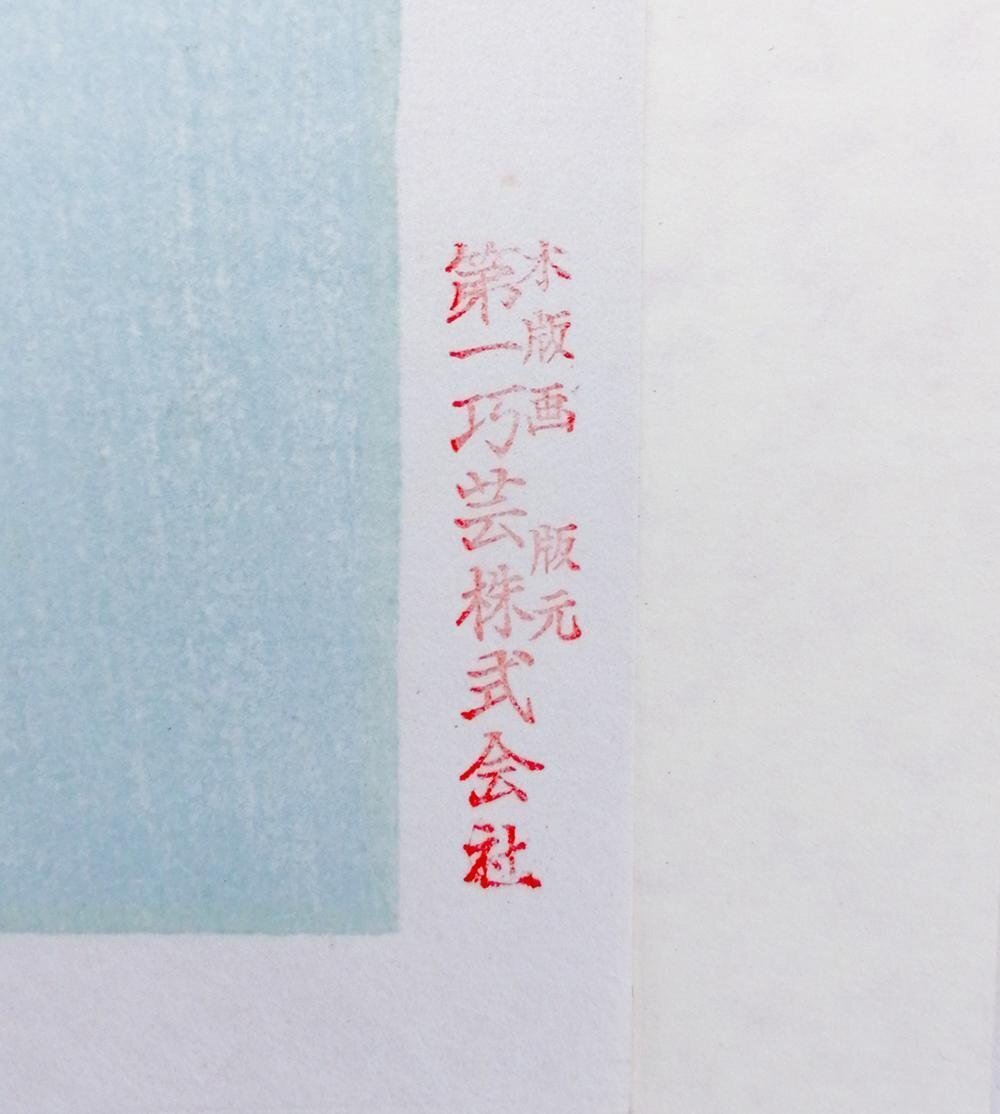 木版画 版元
第一巧芸株式会社